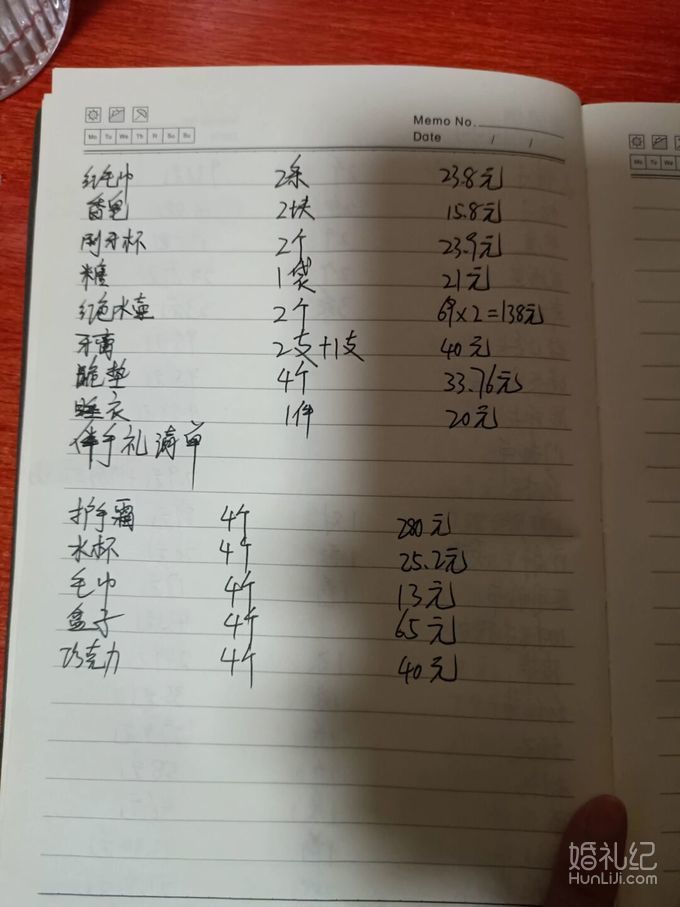 Memo No.
Mo Tu We Th Fr Sa Su
Date / /
红毛巾 2条 23.8元
香皂 2块 15.8元
刷牙杯 2个 23.9元
糖 1袋 21元
红色水壶 2个 69×2=138元
牙膏 2支+1支 40元
跪垫 4个 33.76元
睡衣 1件 20元
伴手礼清单
护手霜 4个 280元
水杯 4个 25.2元
毛巾 4个 13元
盒子 4个 65元
巧克力 4个 40元
婚礼纪
HunLiJi.com